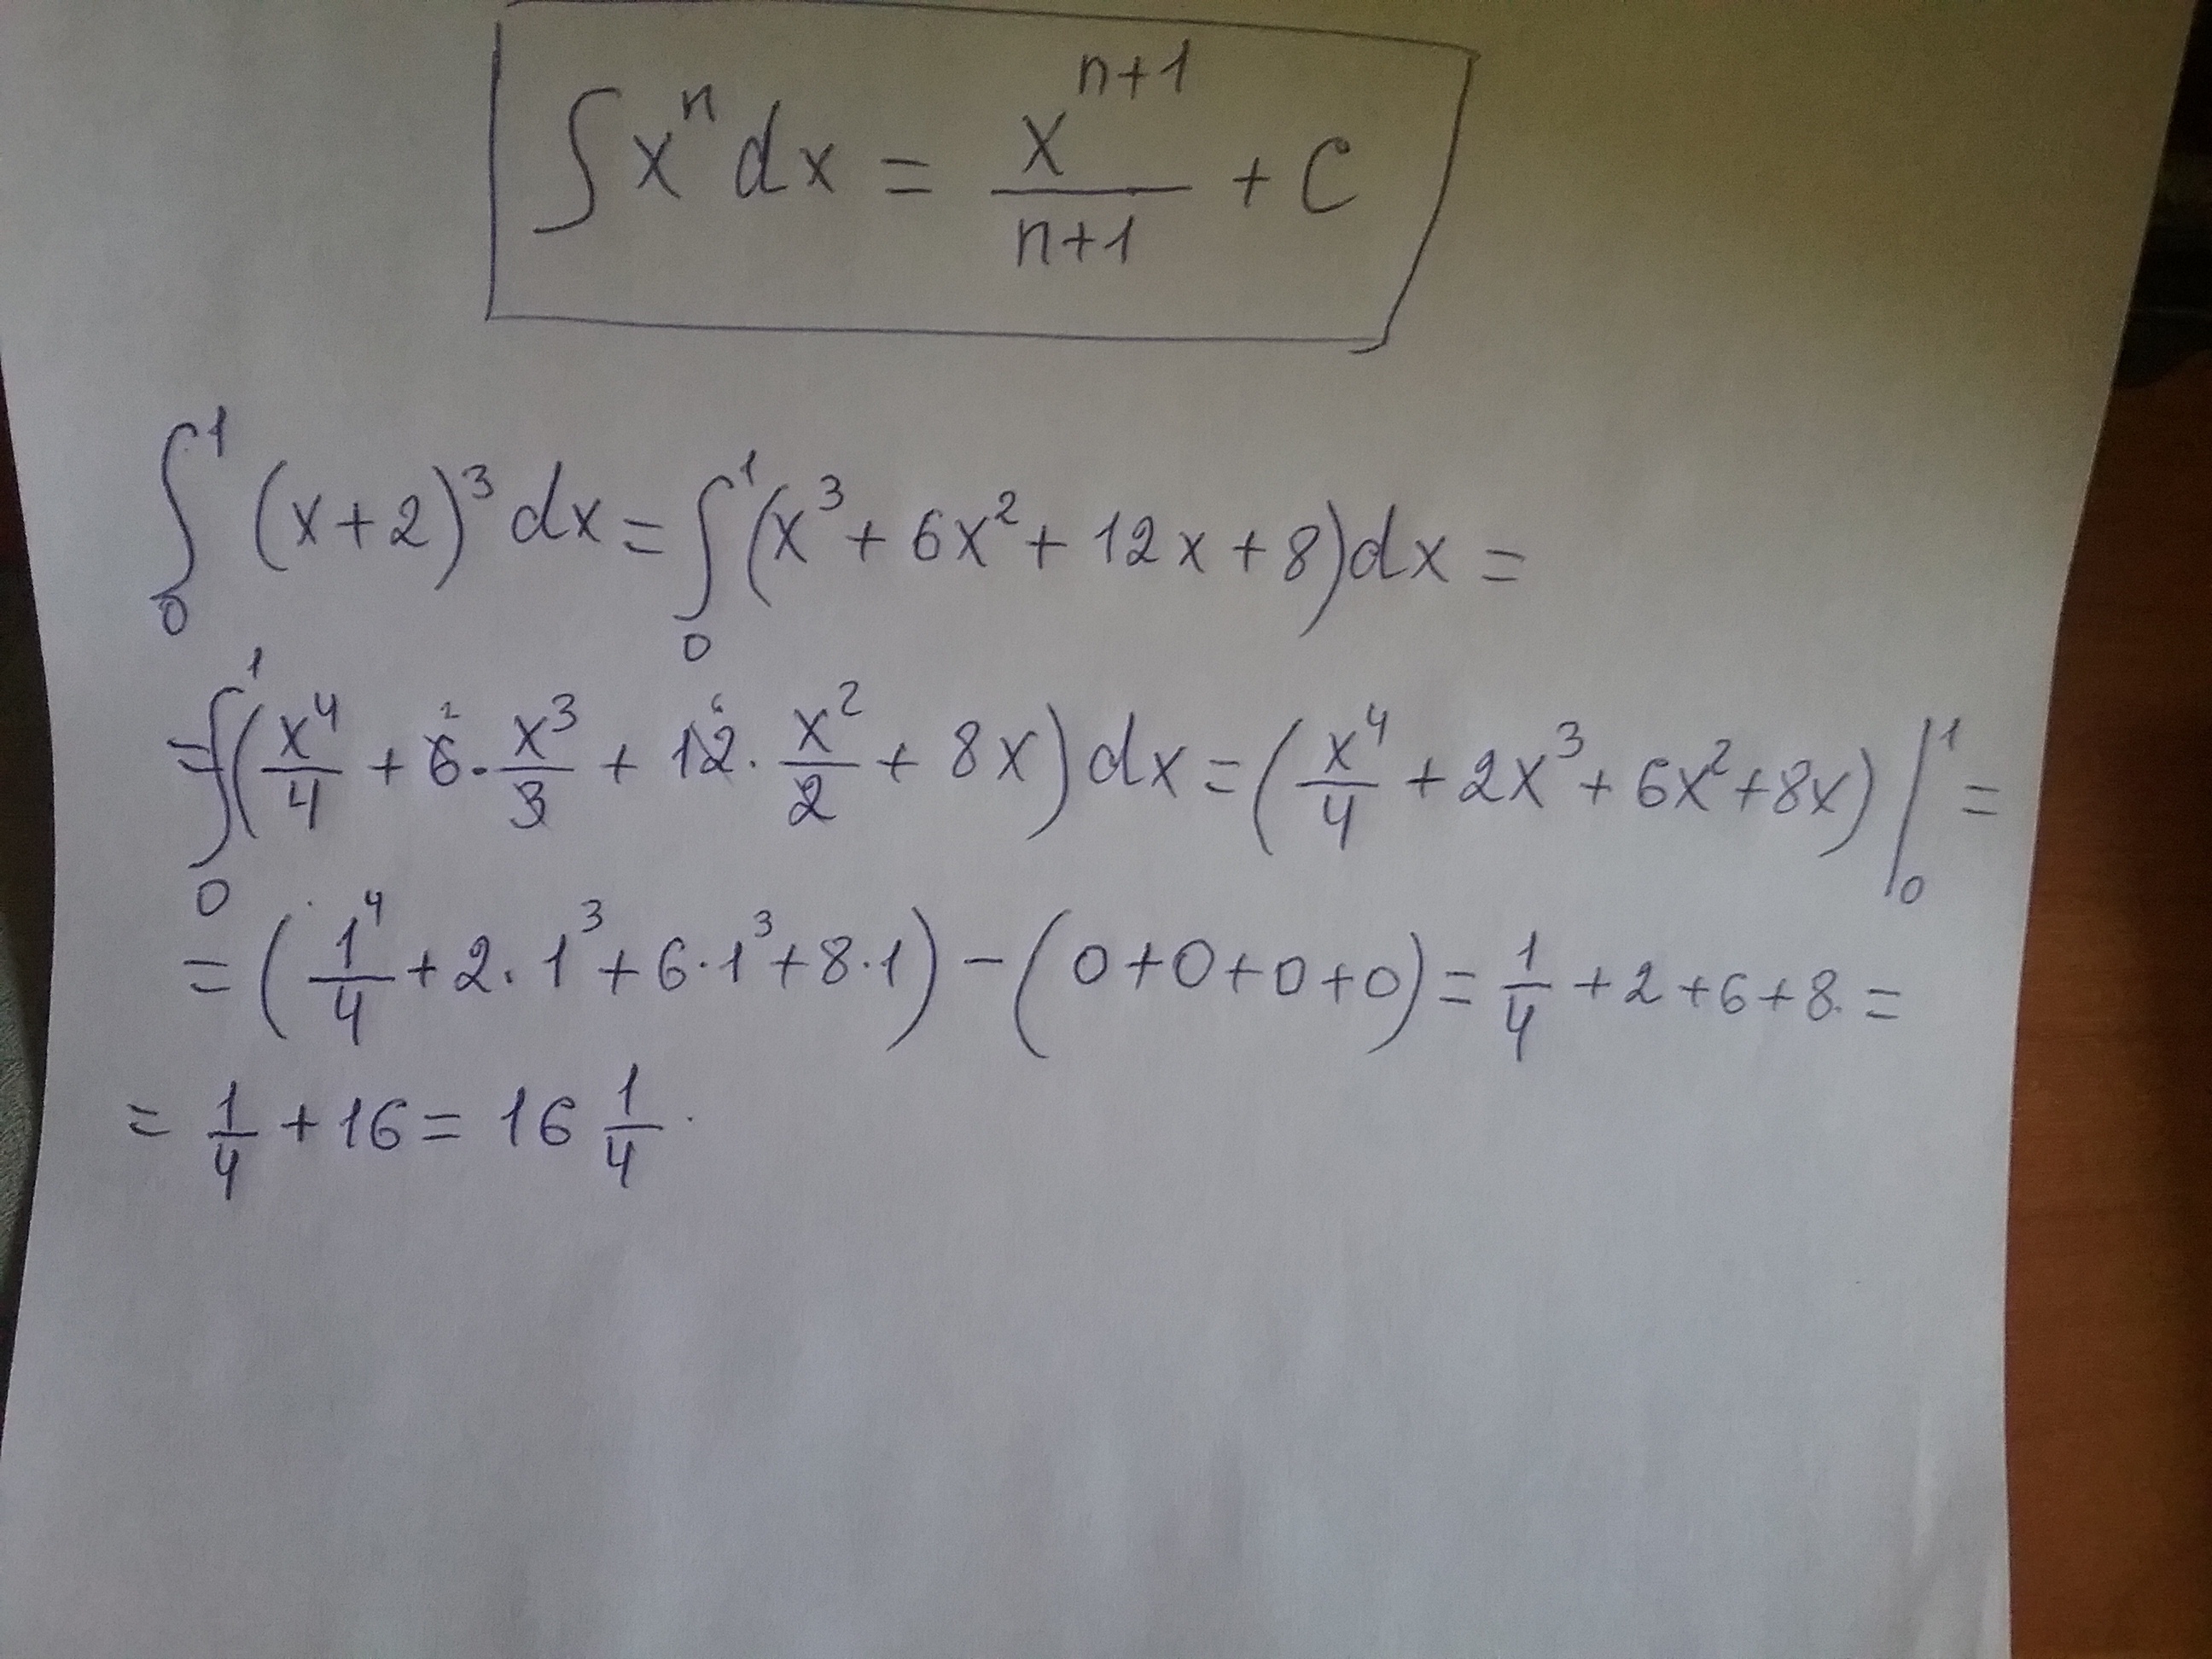 ∫xⁿdx = x^(n+1)/(n+1) + C
∫₀¹ (x+2)³dx = ∫₀¹ (x³ + 6x² + 12x + 8)dx =
= ∫₀¹ (x⁴/4 + 6² · x³/3 + 12⁶ · x²/2 + 8x)dx = (x⁴/4 + 2x³ + 6x² + 8x) |₀¹ =
= (1⁴/4 + 2 · 1³ + 6 · 1³ + 8 · 1) − (0+0+0+0) = 1/4 + 2 + 6 + 8 =
= 1/4 + 16 = 16 1/4.